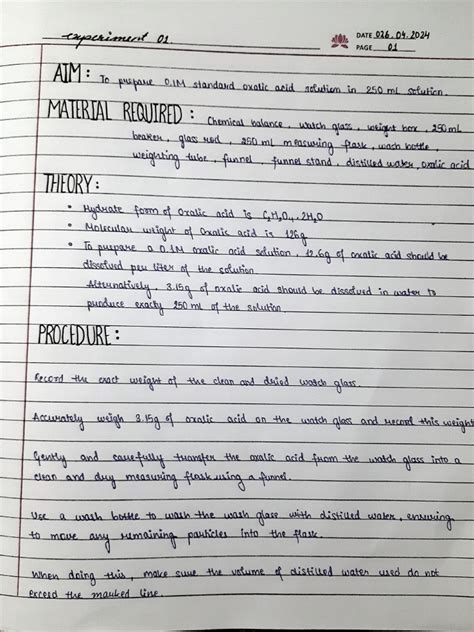 experiment 01.
DATE 026.04.2024
PAGE 01
AIM : To prepare 0.1M standard oxalic acid solution in 250 ml solution.
MATERIAL REQUIRED : Chemical balance, watch glass, weight box, 250ml
beaker, glass rod, 250 ml measuring flask, wash bottle,
weighting tube, funnel, funnel stand, distilled water, oxalic acid
THEORY :
• Hydrate form of oxalic acid is C₂H₂O₄.2H₂O
• Molecular weight of oxalic acid is 126g
• To prepare a 0.1M oxalic acid solution, 12.6g of oxalic acid should be
dissolved per liter of the solution
Alternatively, 3.15g of oxalic acid should be dissolved in water to
produce exactly 250 ml of the solution.
PROCEDURE :
Record the exact weight of the clean and dried watch glass.
Accurately weigh 3.15g of oxalic acid on the watch glass and record this weight
Gently and carefully transfer the oxalic acid from the watch glass into a
clean and dry measuring flask using a funnel.
Use a wash bottle to wash the wash glass with distilled water, ensuring
to move any remaining particles into the flask.
When doing this, make sure the volume of distilled water used do not
exceed the marked line.